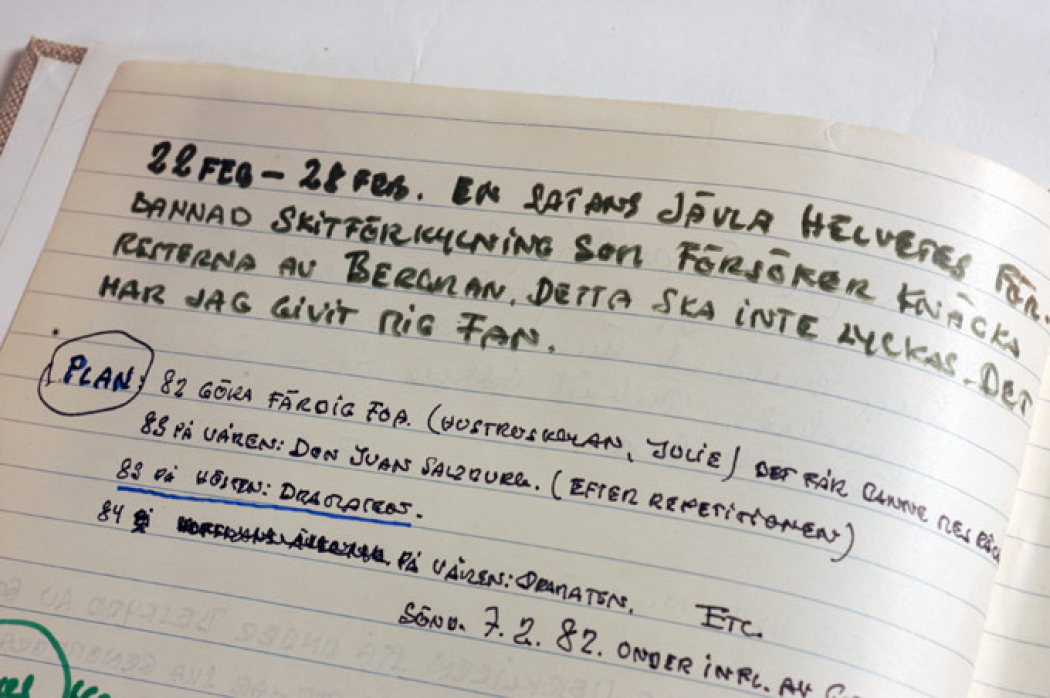 22 FEB – 28 FEB. EN SATANS JÄVLA HELVETES FÖR-
BANNAD SKITFÖRKYLNING SOM FÖRSÖKER KNÄCKA
RESTERNA AV BERGMAN. DETTA SKA INTE LYCKAS. DET
HAR JAG GIVIT MIG FAN.
PLAN: 82 GÖRA FÄRDIG FOA. (HUSTRUSKOLAN, JULIE) DET FÅR BANNE MEJ RÄCKA
83 PÅ VÅREN: DON JUAN SALZBURG. (EFTER REPETITIONEN)
83 PÅ HÖSTEN:
84 PÅ VÅREN: DRAMATEN. ETC.
SÖND. 7.2.82. UNDER INFL. AV